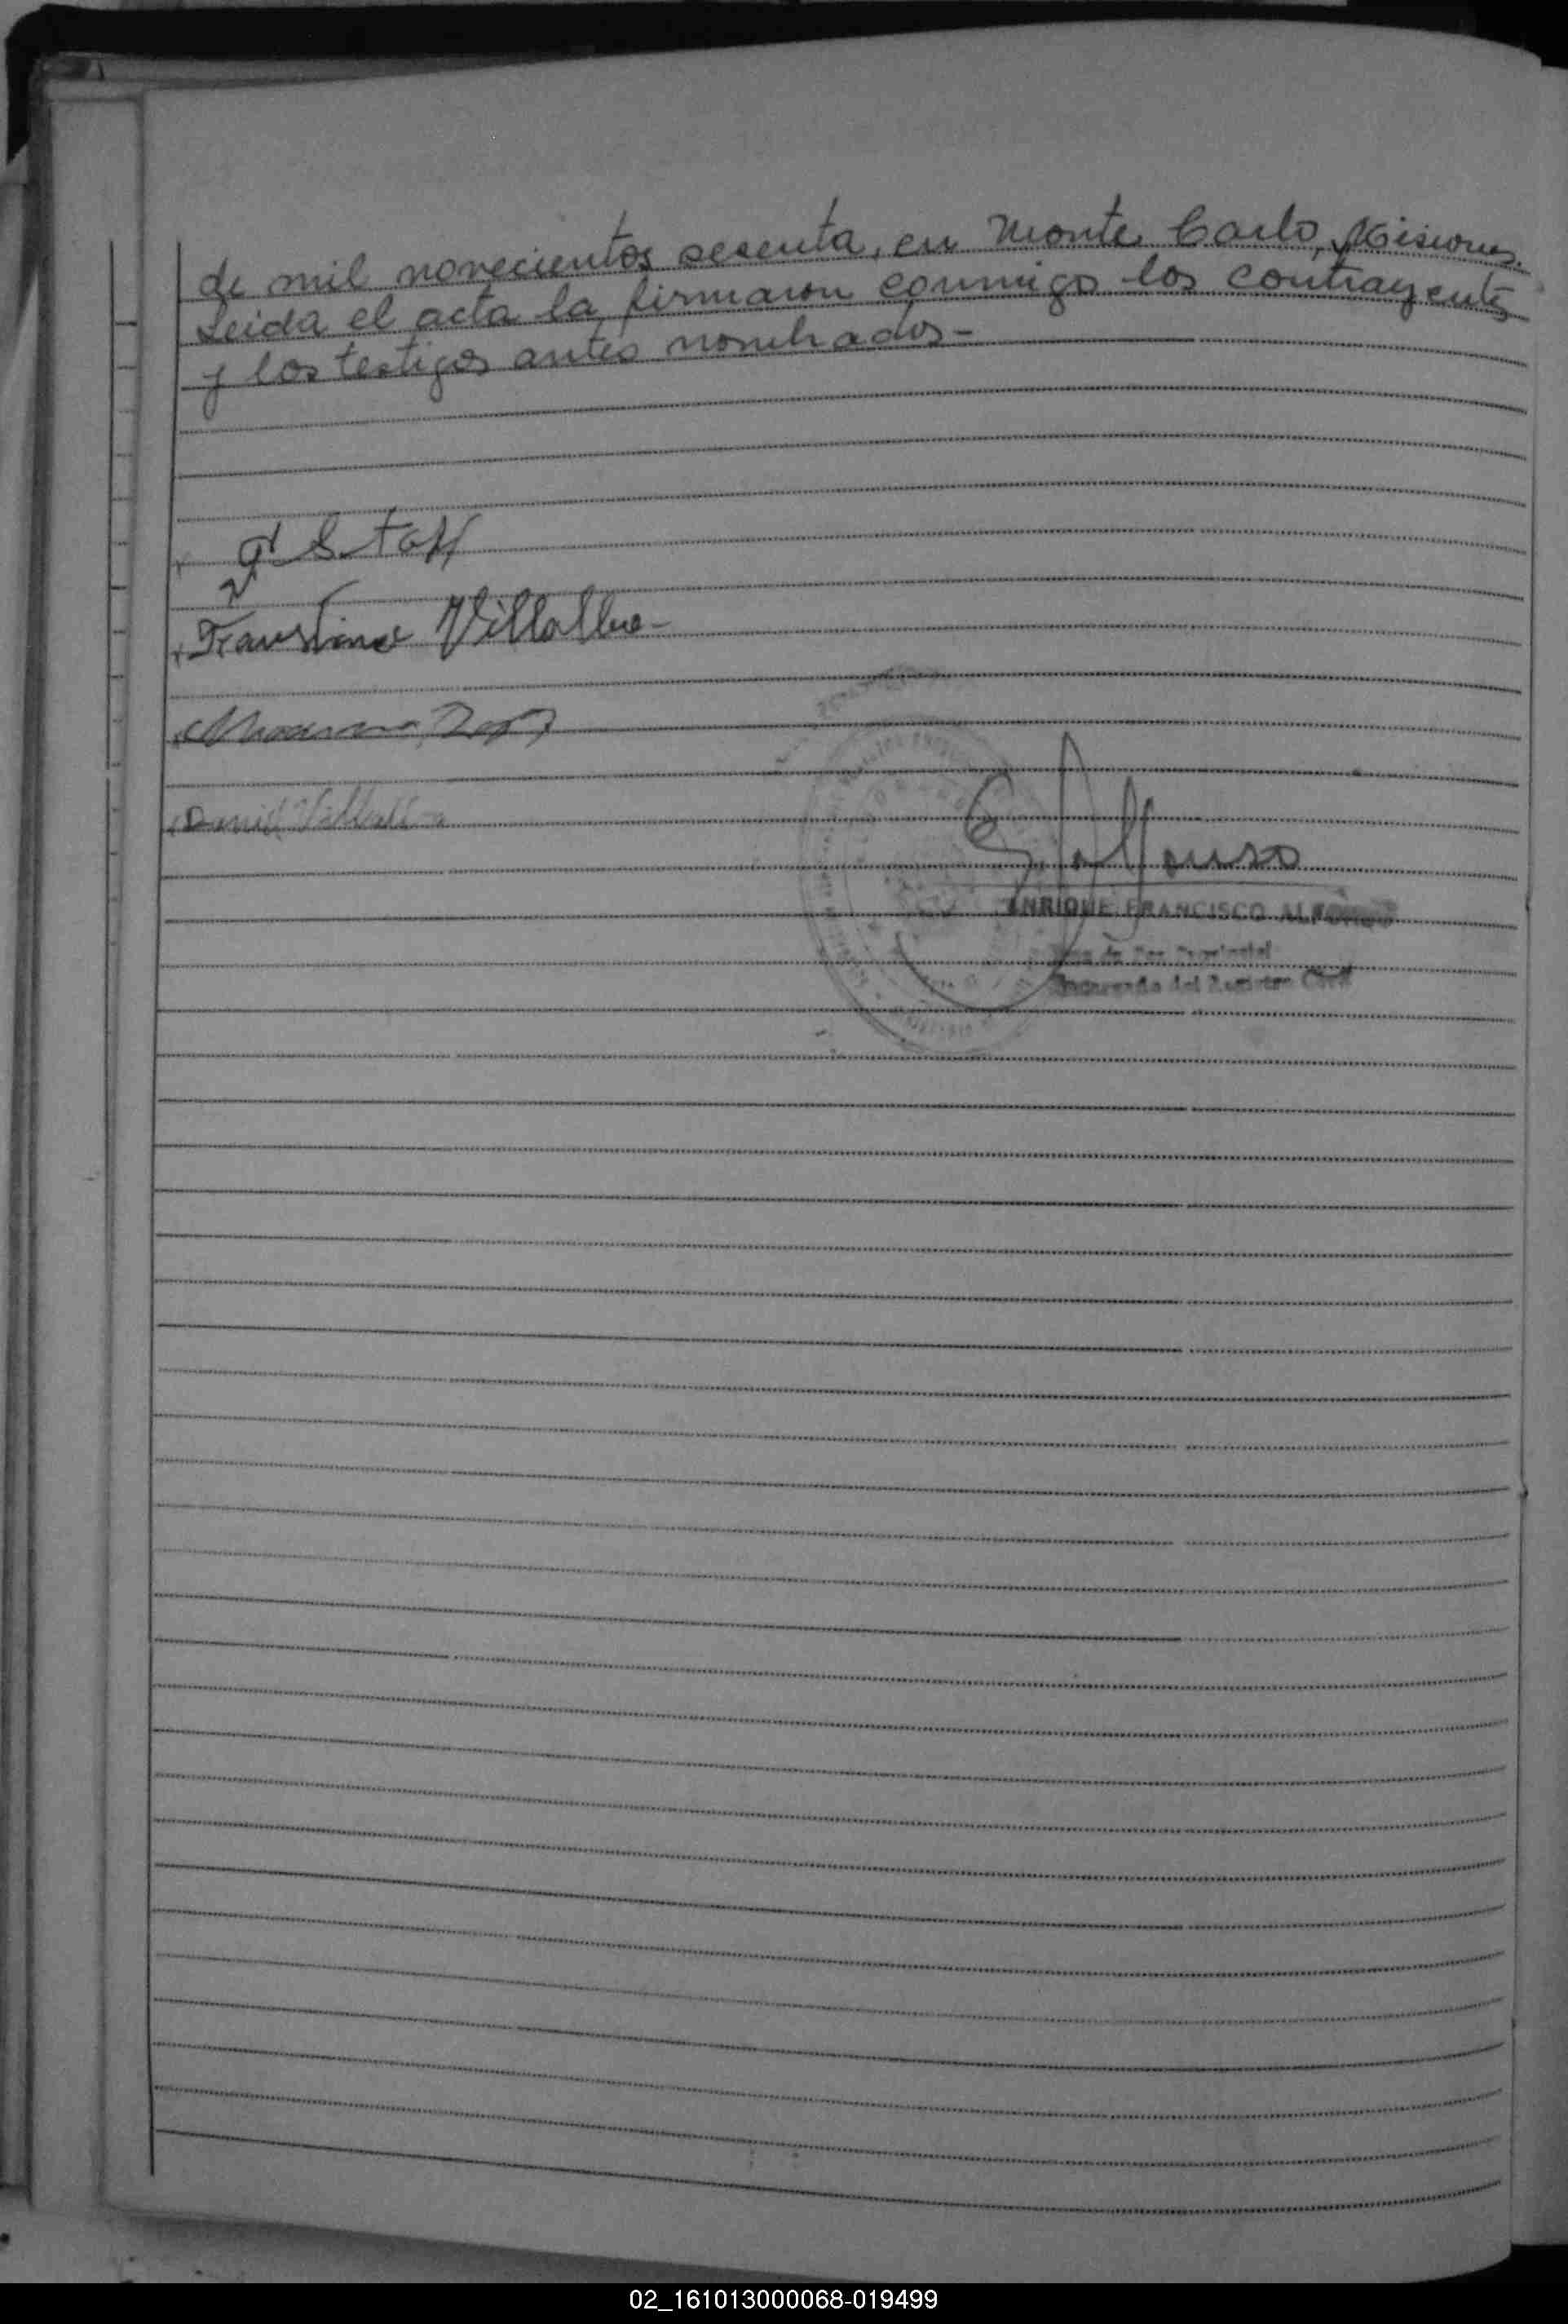 de mil novecientos sesenta, en Monte Carlo, Misiones.
Leida el acta la firmaron conmigo los contrayentes
y los testigos antes nombrados-
Faustina Villalba-
Daniel Villalba
ENRIQUE FRANCISCO ALFONSO
Juez de Paz Provincial
Encargado del Registro Civil
02_161013000068-019499